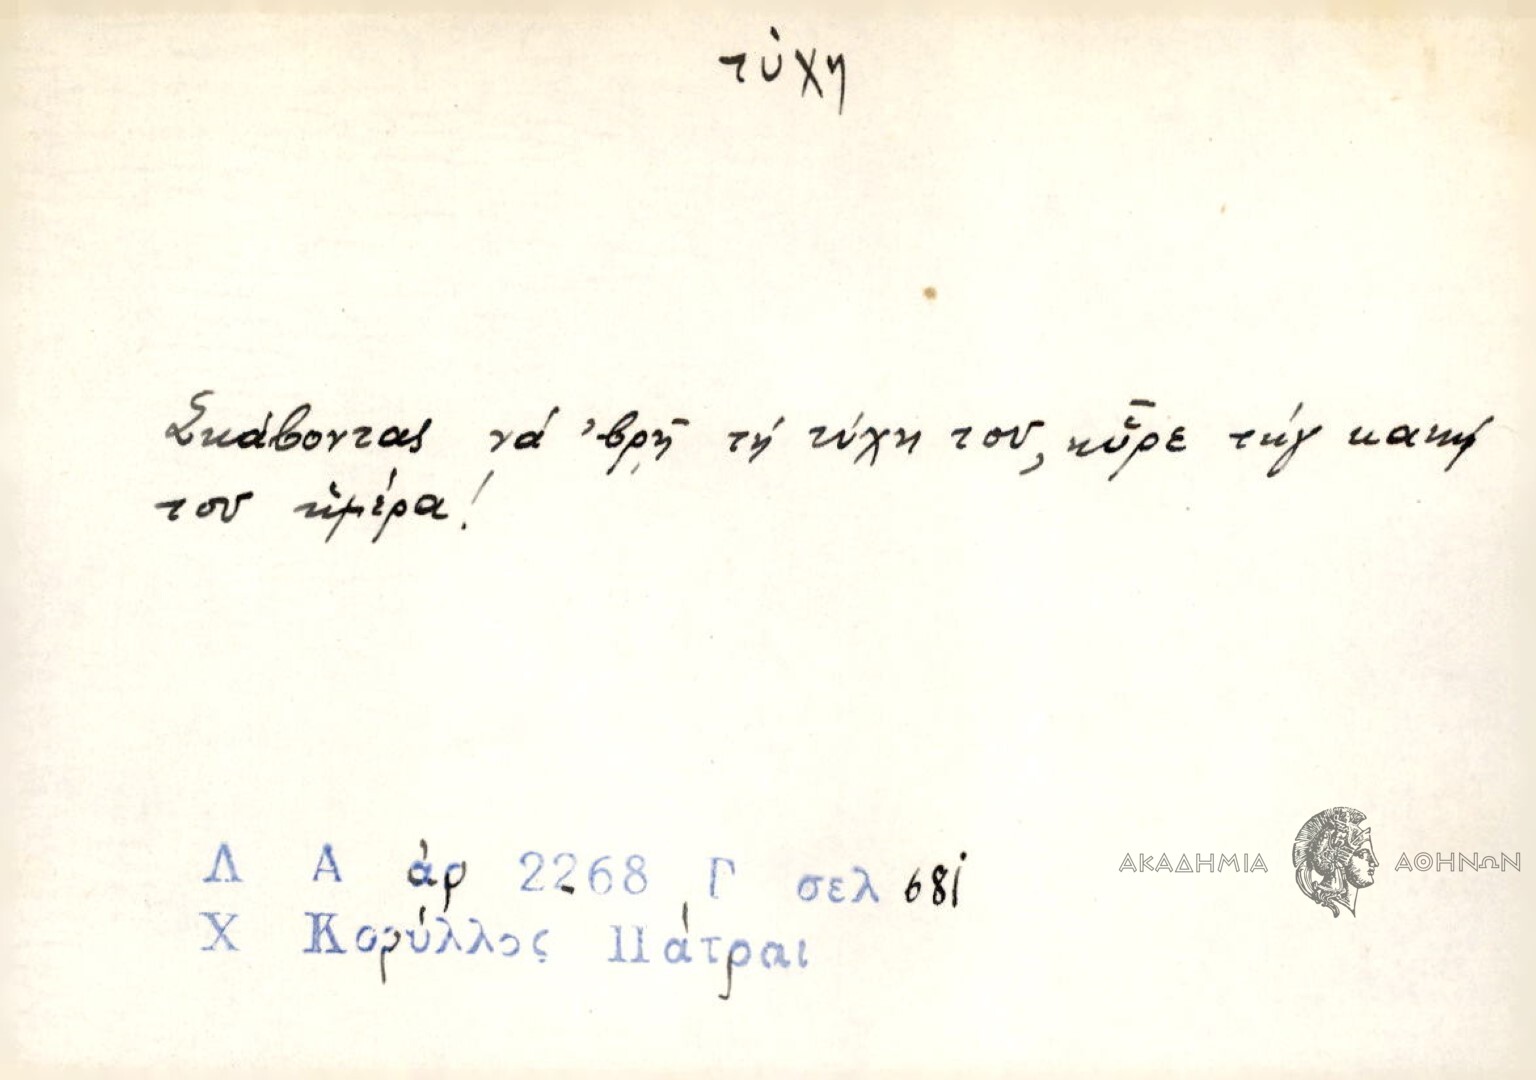 τύχη
Σκάβοντας νά ’βρῆ τή τύχη του, ηὗρε τήν κακή
του ἡμέρα!
Λ Α ἀρ 2268 Γ σελ 681
Χ Κορύλλος Πάτραι
ΑΚΑΔΗΜΙΑ ΑΘΗΝΩΝ